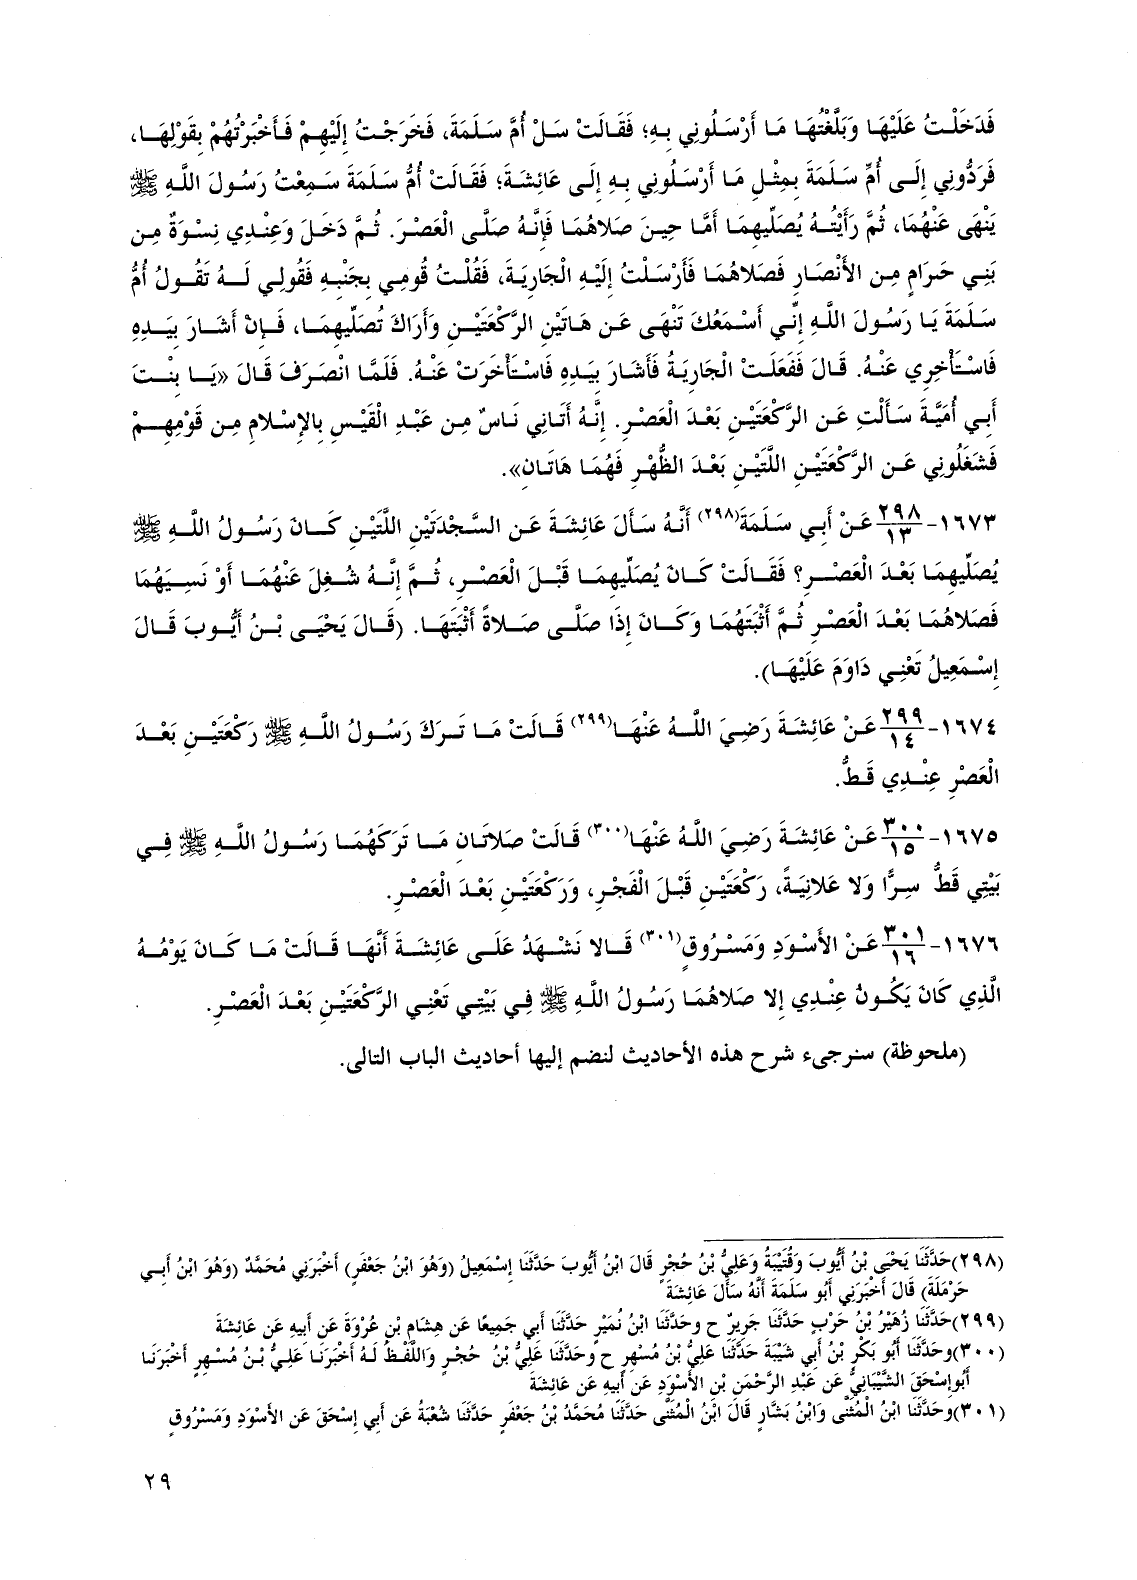 فَدَخَلْتُ عَلَيْهَا وَبَلَّغْتُهَا مَا أَرْسَلُونِي بِهِ؛ فَقَالَتْ سَلْ أُمَّ سَلَمَةَ، فَخَرَجْتُ إِلَيْهِمْ فَأَخْبَرْتُهُمْ بِقَوْلِهَا،
فَرَدُّونِي إِلَى أُمِّ سَلَمَةَ بِمِثْلِ مَا أَرْسَلُونِي بِهِ إِلَى عَائِشَةَ؛ فَقَالَتْ أُمُّ سَلَمَةَ سَمِعْتُ رَسُولَ اللَّهِ ﷺ
يَنْهَى عَنْهُمَا، ثُمَّ رَأَيْتُهُ يُصَلِّيهِمَا أَمَّا حِينَ صَلاهُمَا فَإِنَّهُ صَلَّى الْعَصْرَ. ثُمَّ دَخَلَ وَعِنْدِي نِسْوَةٌ مِن
بَنِي حَرَامٍ مِن الأَنْصَارِ فَصَلاهُمَا فَأَرْسَلْتُ إِلَيْهِ الْجَارِيَةَ، فَقُلْتُ قُومِي بِجَنْبِهِ فَقُولِي لَهُ تَقُولُ أُمُّ
سَلَمَةَ يَا رَسُولَ اللَّهِ إِنِّي أَسْمَعُكَ تَنْهَى عَن هَاتَيْنِ الرَّكْعَتَيْنِ وَأَرَاكَ تُصَلِّيهِمَا، فَإِنْ أَشَارَ بِيَدِهِ
فَاسْتَأْخِرِي عَنْهُ. قَالَ فَفَعَلَتْ الْجَارِيَةُ فَأَشَارَ بِيَدِهِ فَاسْتَأْخَرَتْ عَنْهُ. فَلَمَّا انْصَرَفَ قَالَ «يَا بِنْتَ
أَبِي أُمَيَّةَ سَأَلْتِ عَن الرَّكْعَتَيْنِ بَعْدَ الْعَصْرِ. إِنَّهُ أَتَانِي نَاسٌ مِن عَبْدِ الْقَيْسِ بِالإِسْلامِ مِن قَوْمِهِمْ
فَشَغَلُونِي عَن الرَّكْعَتَيْنِ اللَّتَيْنِ بَعْدَ الظُّهْرِ فَهُمَا هَاتَانِ».
١٦٧٣- ٢٩٨/١٣ عَنْ أَبِي سَلَمَةَ(٢٩٨) أَنَّهُ سَأَلَ عَائِشَةَ عَن السَّجْدَتَيْنِ اللَّتَيْنِ كَانَ رَسُولُ اللَّهِ ﷺ
يُصَلِّيهِمَا بَعْدَ الْعَصْرِ؟ فَقَالَتْ كَانَ يُصَلِّيهِمَا قَبْلَ الْعَصْرِ، ثُمَّ إِنَّهُ شُغِلَ عَنْهُمَا أَوْ نَسِيَهُمَا
فَصَلاهُمَا بَعْدَ الْعَصْرِ ثُمَّ أَثْبَتَهُمَا وَكَانَ إِذَا صَلَّى صَلاةً أَثْبَتَهَا. (قَالَ يَحْيَى بْنُ أَيُّوبَ قَالَ
إِسْمَعِيلُ تَعْنِي دَاوَمَ عَلَيْهَا).
١٦٧٤- ٢٩٩/١٤ عَنْ عَائِشَةَ رَضِيَ اللَّهُ عَنْهَا(٢٩٩) قَالَتْ مَا تَرَكَ رَسُولُ اللَّهِ ﷺ رَكْعَتَيْنِ بَعْدَ
الْعَصْرِ عِنْدِي قَطُّ.
١٦٧٥- ٣٠٠/١٥ عَنْ عَائِشَةَ رَضِيَ اللَّهُ عَنْهَا(٣٠٠) قَالَتْ صَلاتَانِ مَا تَرَكَهُمَا رَسُولُ اللَّهِ ﷺ فِي
بَيْتِي قَطُّ سِرًّا وَلا عَلانِيَةً، رَكْعَتَيْنِ قَبْلَ الْفَجْرِ، وَرَكْعَتَيْنِ بَعْدَ الْعَصْرِ.
١٦٧٦- ٣٠١/١٦ عَنْ الأَسْوَدِ وَمَسْرُوقٍ(٣٠١) قَالا نَشْهَدُ عَلَى عَائِشَةَ أَنَّهَا قَالَتْ مَا كَانَ يَوْمُهُ
الَّذِي كَانَ يَكُونُ عِنْدِي إِلا صَلاهُمَا رَسُولُ اللَّهِ ﷺ فِي بَيْتِي تَعْنِي الرَّكْعَتَيْنِ بَعْدَ الْعَصْرِ.
(ملحوظة) سنرجىء شرح هذه الأحاديث لنضم إليها أحاديث الباب التالى.
(٢٩٨)حَدَّثَنَا يَحْيَى بْنُ أَيُّوبَ وَقُتَيْبَةُ وَعَلِيُّ بْنُ حُجْرٍ قَالَ ابْنُ أَيُّوبَ حَدَّثَنَا إِسْمَعِيلُ (وَهُوَ ابْنُ جَعْفَرٍ) أَخْبَرَنِي مُحَمَّدٌ (وَهُوَ ابْنُ أَبِي
حَرْمَلَةَ) قَالَ أَخْبَرَنِي أَبُو سَلَمَةَ أَنَّهُ سَأَلَ عَائِشَةَ
(٢٩٩)حَدَّثَنَا زُهَيْرُ بْنُ حَرْبٍ حَدَّثَنَا جَرِيرٌ ح وحَدَّثَنَا ابْنُ نُمَيْرٍ حَدَّثَنَا أَبِي جَمِيعًا عَن هِشَامِ بْنِ عُرْوَةَ عَن أَبِيهِ عَن عَائِشَةَ
(٣٠٠)وحَدَّثَنَا أَبُو بَكْرِ بْنُ أَبِي شَيْبَةَ حَدَّثَنَا عَلِيُّ بْنُ مُسْهِرٍ ح وحَدَّثَنَا عَلِيُّ بْنُ حُجْرٍ وَاللَّفْظُ لَهُ أَخْبَرَنَا عَلِيُّ بْنُ مُسْهِرٍ أَخْبَرَنَا
أَبُوإِسْحَقَ الشَّيْبَانِيُّ عَن عَبْدِ الرَّحْمَنِ بْنِ الأَسْوَدِ عَن أَبِيهِ عَن عَائِشَةَ
(٣٠١)وحَدَّثَنَا ابْنُ الْمُثَنَّى وَابْنُ بَشَّارٍ قَالَ ابْنُ الْمُثَنَّى حَدَّثَنَا مُحَمَّدُ بْنُ جَعْفَرٍ حَدَّثَنَا شُعْبَةُ عَن أَبِي إِسْحَقَ عَن الأَسْوَدِ وَمَسْرُوقٍ
٢٩